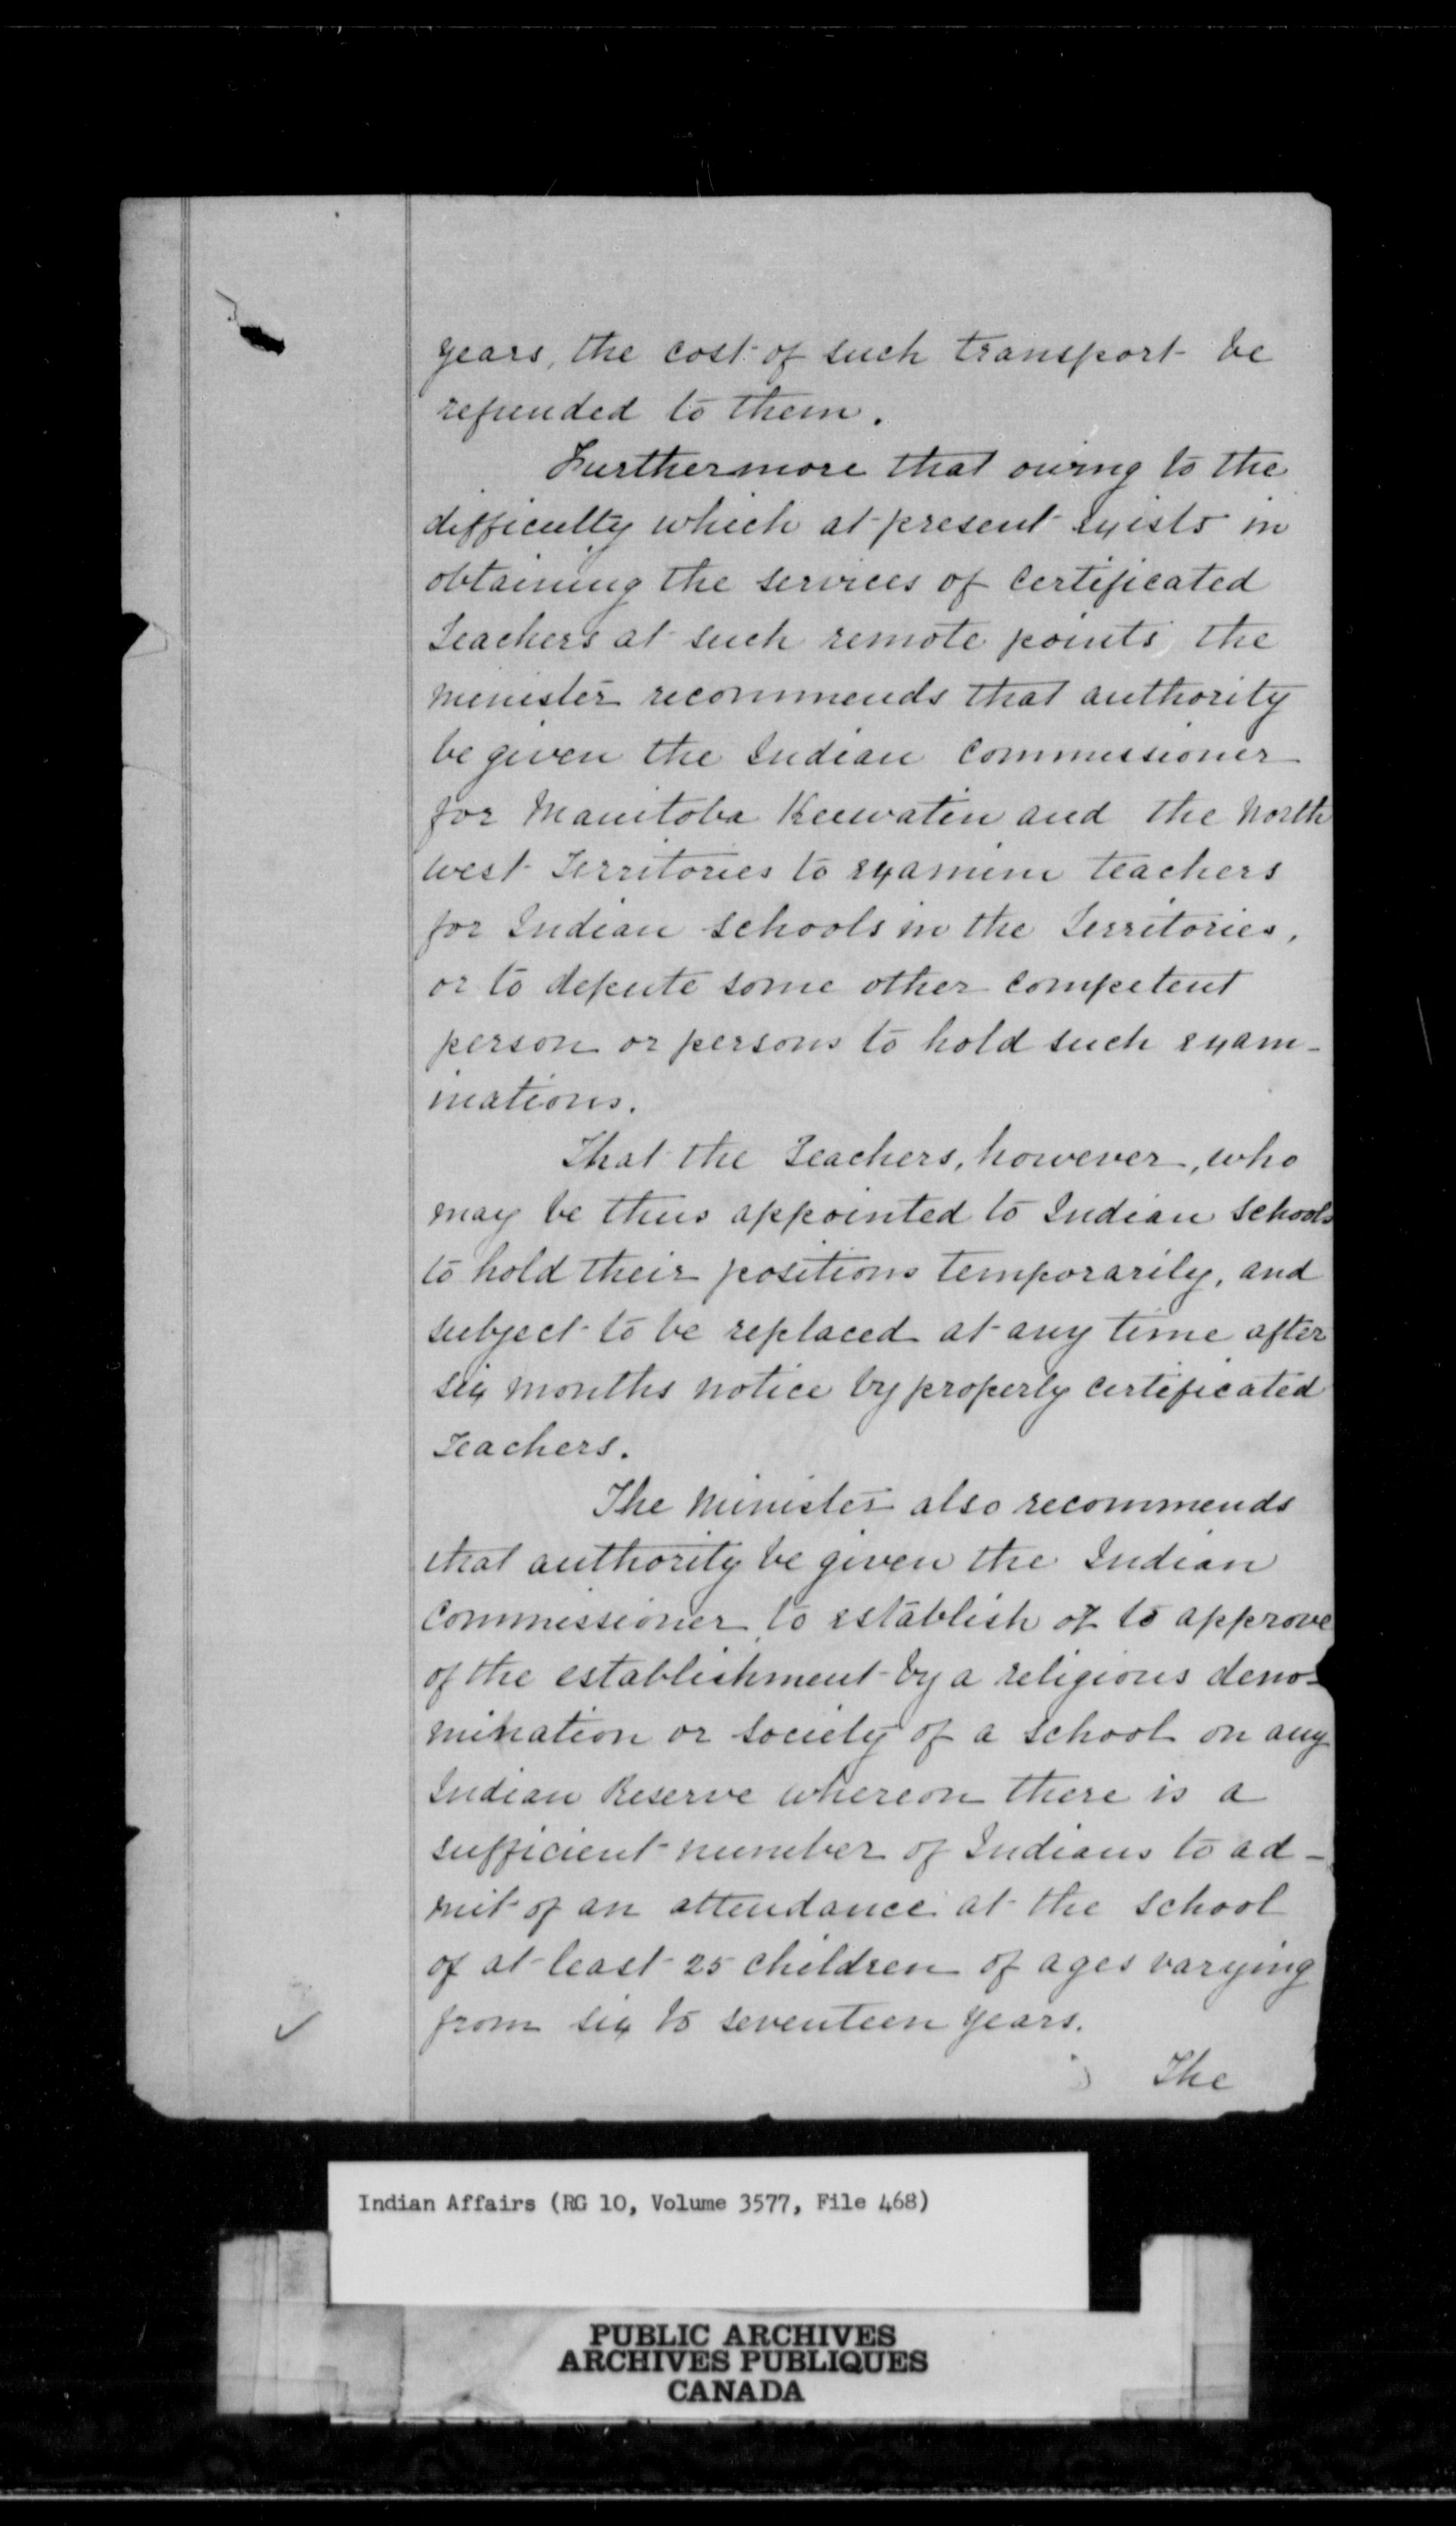 years, the cost of such transport be
refunded to them.
Furthermore that owing to the
difficulty which at present exists in
obtaining the services of Certificated
Teachers at such remote points, the
Minister recommends that authority
be given the Indian Commissioner
for Manitoba Keewatin and the North
West Territories to examine teachers
for Indian schools in the Territories,
or to depute some other competent
person or persons to hold such exam-
inations.
That the Teachers, however, who
may be thus appointed to Indian Schools
to hold their positions temporarily, and
subject to be replaced at any time after
six months notice by properly certificated
Teachers.
The Minister also recommends
that authority be given the Indian
Commissioner, to establish or to approve
of the establishment by a religious deno-
mination or society of a school on any
Indian Reserve whereon there is a
sufficient number of Indians to ad-
mit of an attendance at the school
of at least 25 children of ages varying
from six to seventeen years.
The
Indian Affairs (RG 10, Volume 3577, File 468)
PUBLIC ARCHIVES
ARCHIVES PUBLIQUES
CANADA